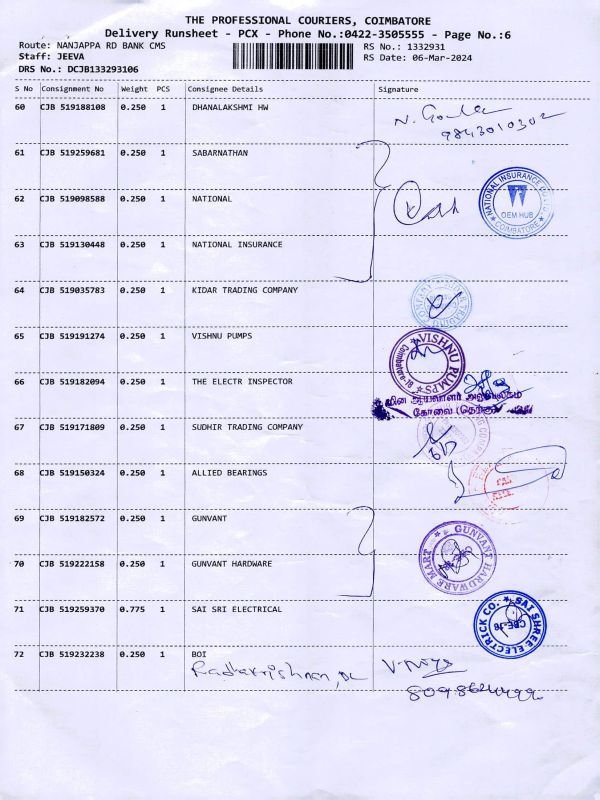 THE PROFESSIONAL COURIERS, COIMBATORE
Delivery Runsheet - PCX - Phone No.:0422-3505555 - Page No.:6
Route: NANJAPPA RD BANK CMS
RS No.: 1332931
Staff: JEEVA
RS Date: 06-Mar-2024
DRS No.: DCJB133293106
S No Consignment No Weight PCS Consignee Details Signature
60 CJB 519188108 0.250 1 DHANALAKSHMI HW
9843010302
61 CJB 519259681 0.250 1 SABARNATHAN
62 CJB 519098588 0.250 1 NATIONAL
NATIONAL INSURANCE
OEM HUB
COIMBATORE
63 CJB 519130448 0.250 1 NATIONAL INSURANCE
64 CJB 519035783 0.250 1 KIDAR TRADING COMPANY
65 CJB 519191274 0.250 1 VISHNU PUMPS
VISHNU PUMPS
Coimbatore-18
66 CJB 519182094 0.250 1 THE ELECTR INSPECTOR
மின் ஆய்வாளர் அலுவலகம்
கோவை (தெற்கு)
67 CJB 519171809 0.250 1 SUDHIR TRADING COMPANY
68 CJB 519150324 0.250 1 ALLIED BEARINGS
69 CJB 519182572 0.250 1 GUNVANT
GUNVANT HARDWARE MART
70 CJB 519222158 0.250 1 GUNVANT HARDWARE
71 CJB 519259370 0.775 1 SAI SRI ELECTRICAL
SAI SHREE ELECTRICK CO.
CBE-18
72 CJB 519232238 0.250 1 BOI
Radhakrishnan,